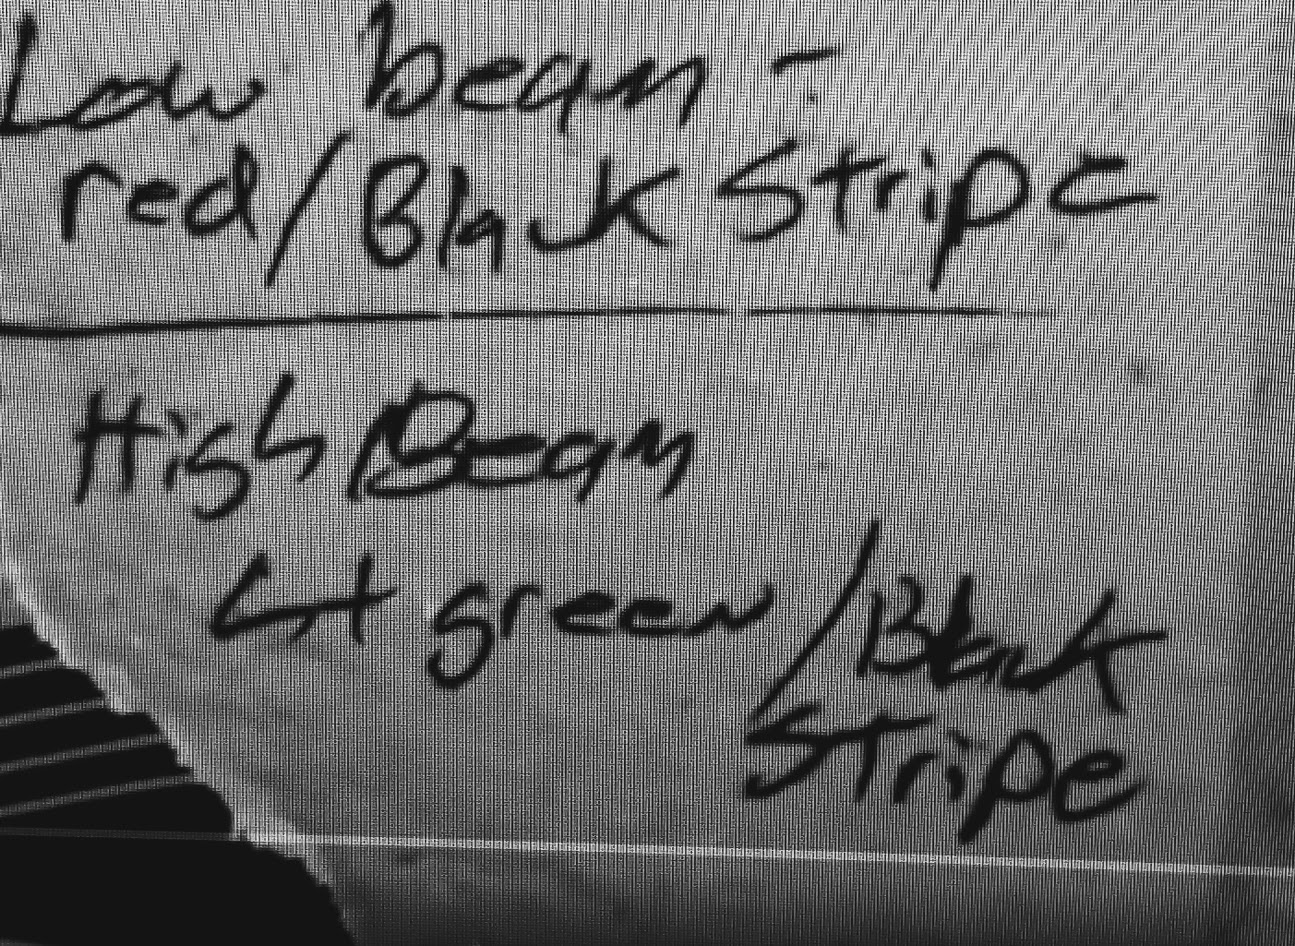 Low beam -
red/Black Stripe
High Beam
↳ green/Black
Stripe